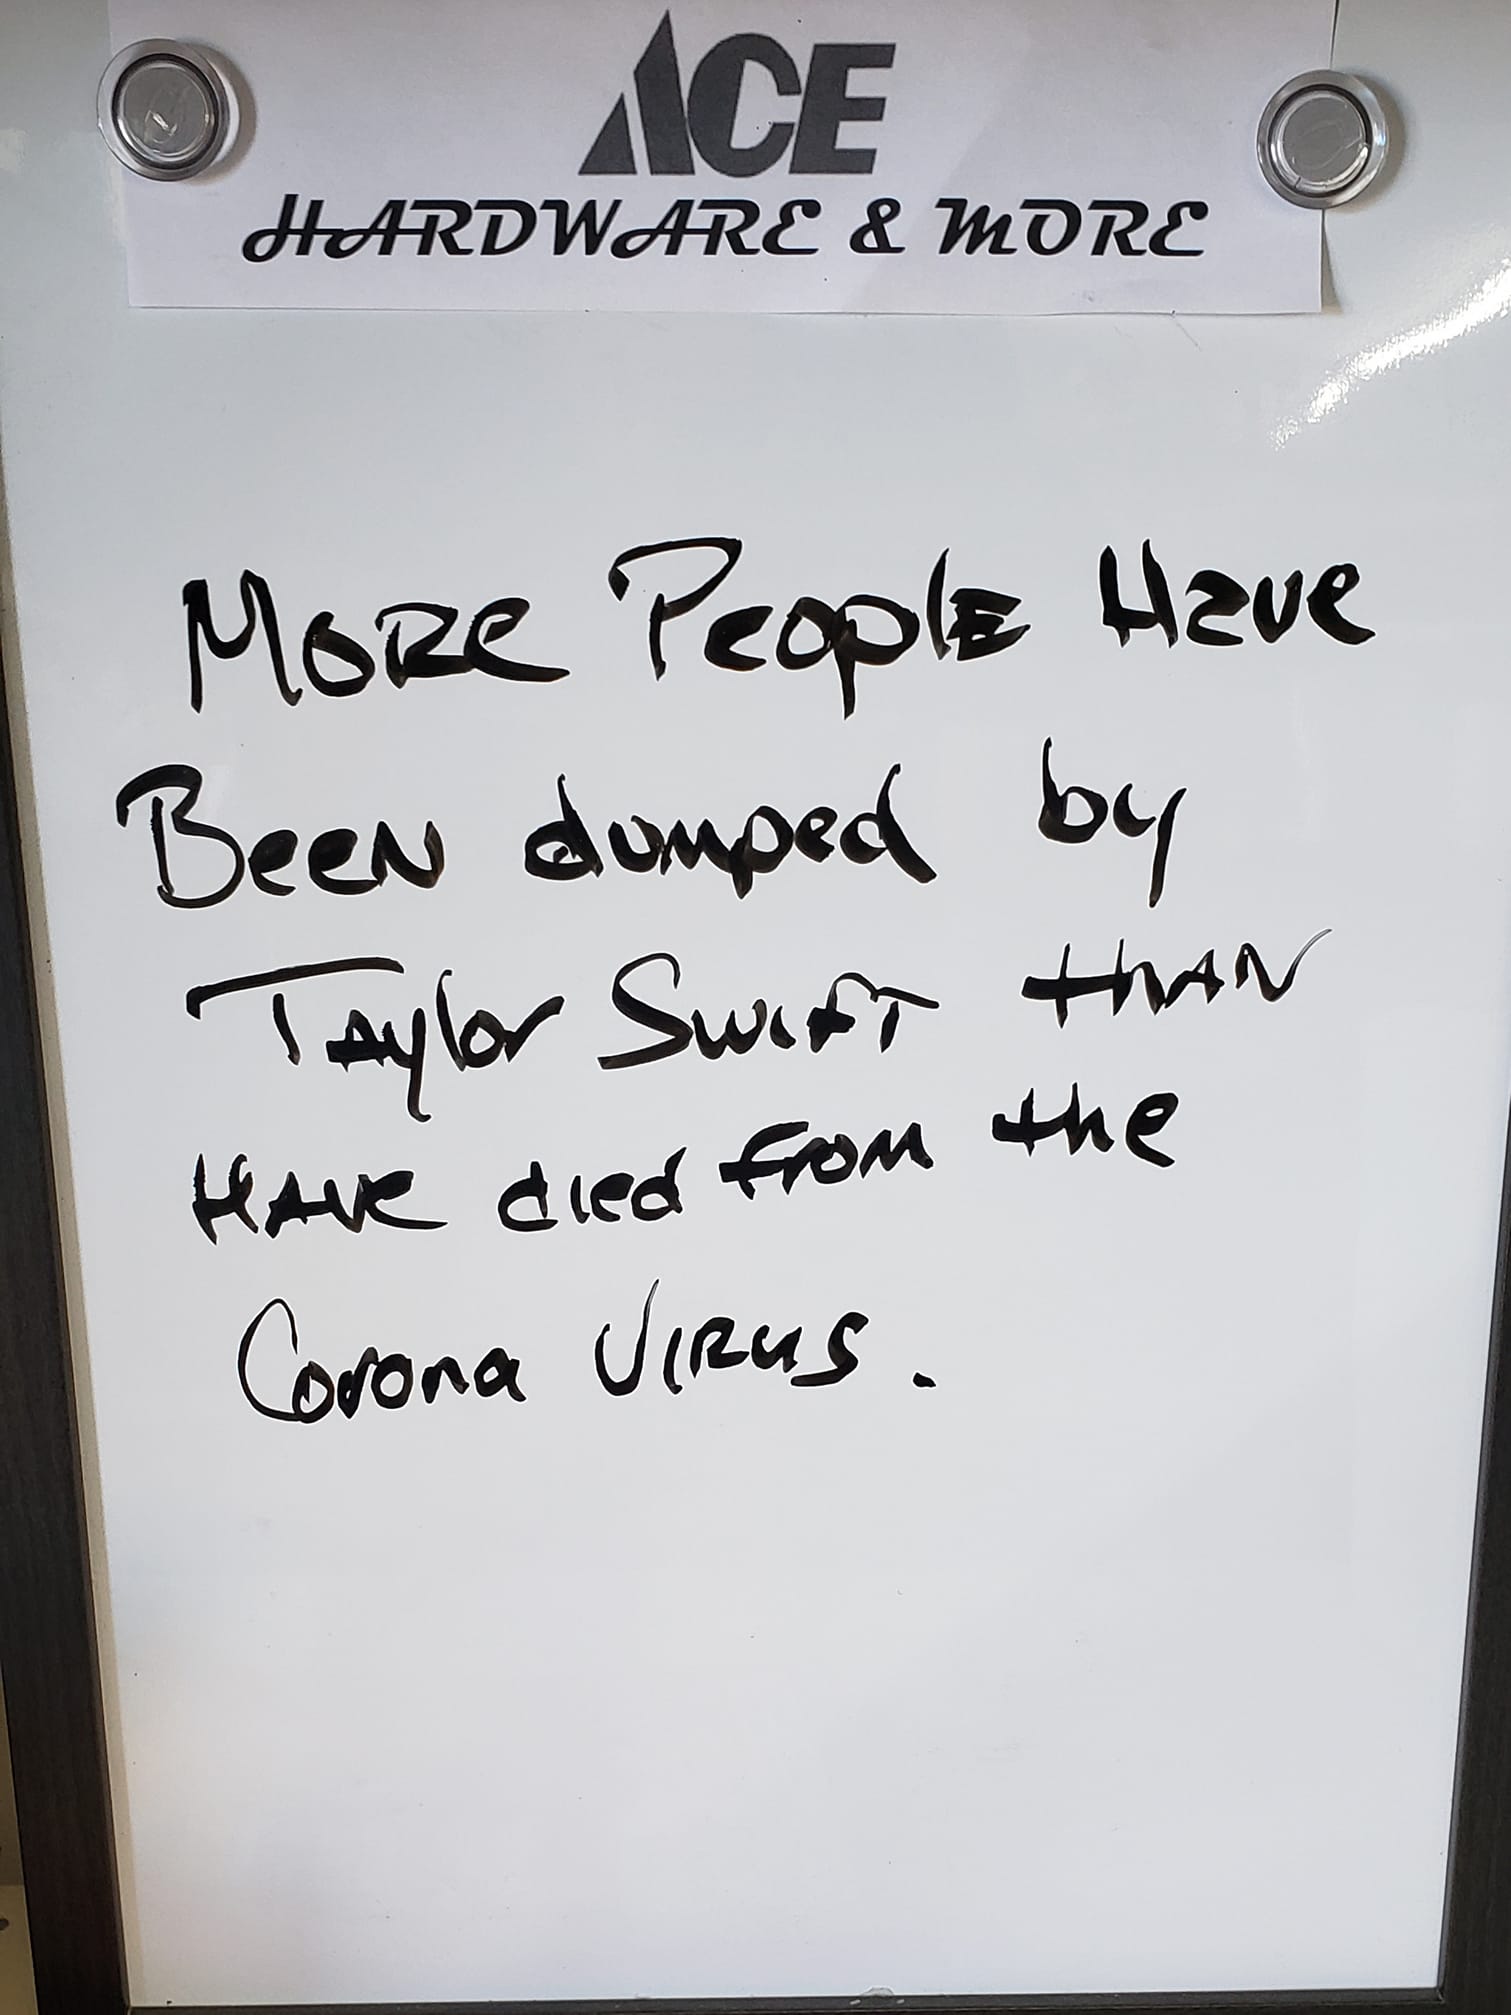 ACE
HARDWARE & MORE
More People Have
Been dumped by
Taylor Swift than
Have died from the
Corona Virus.